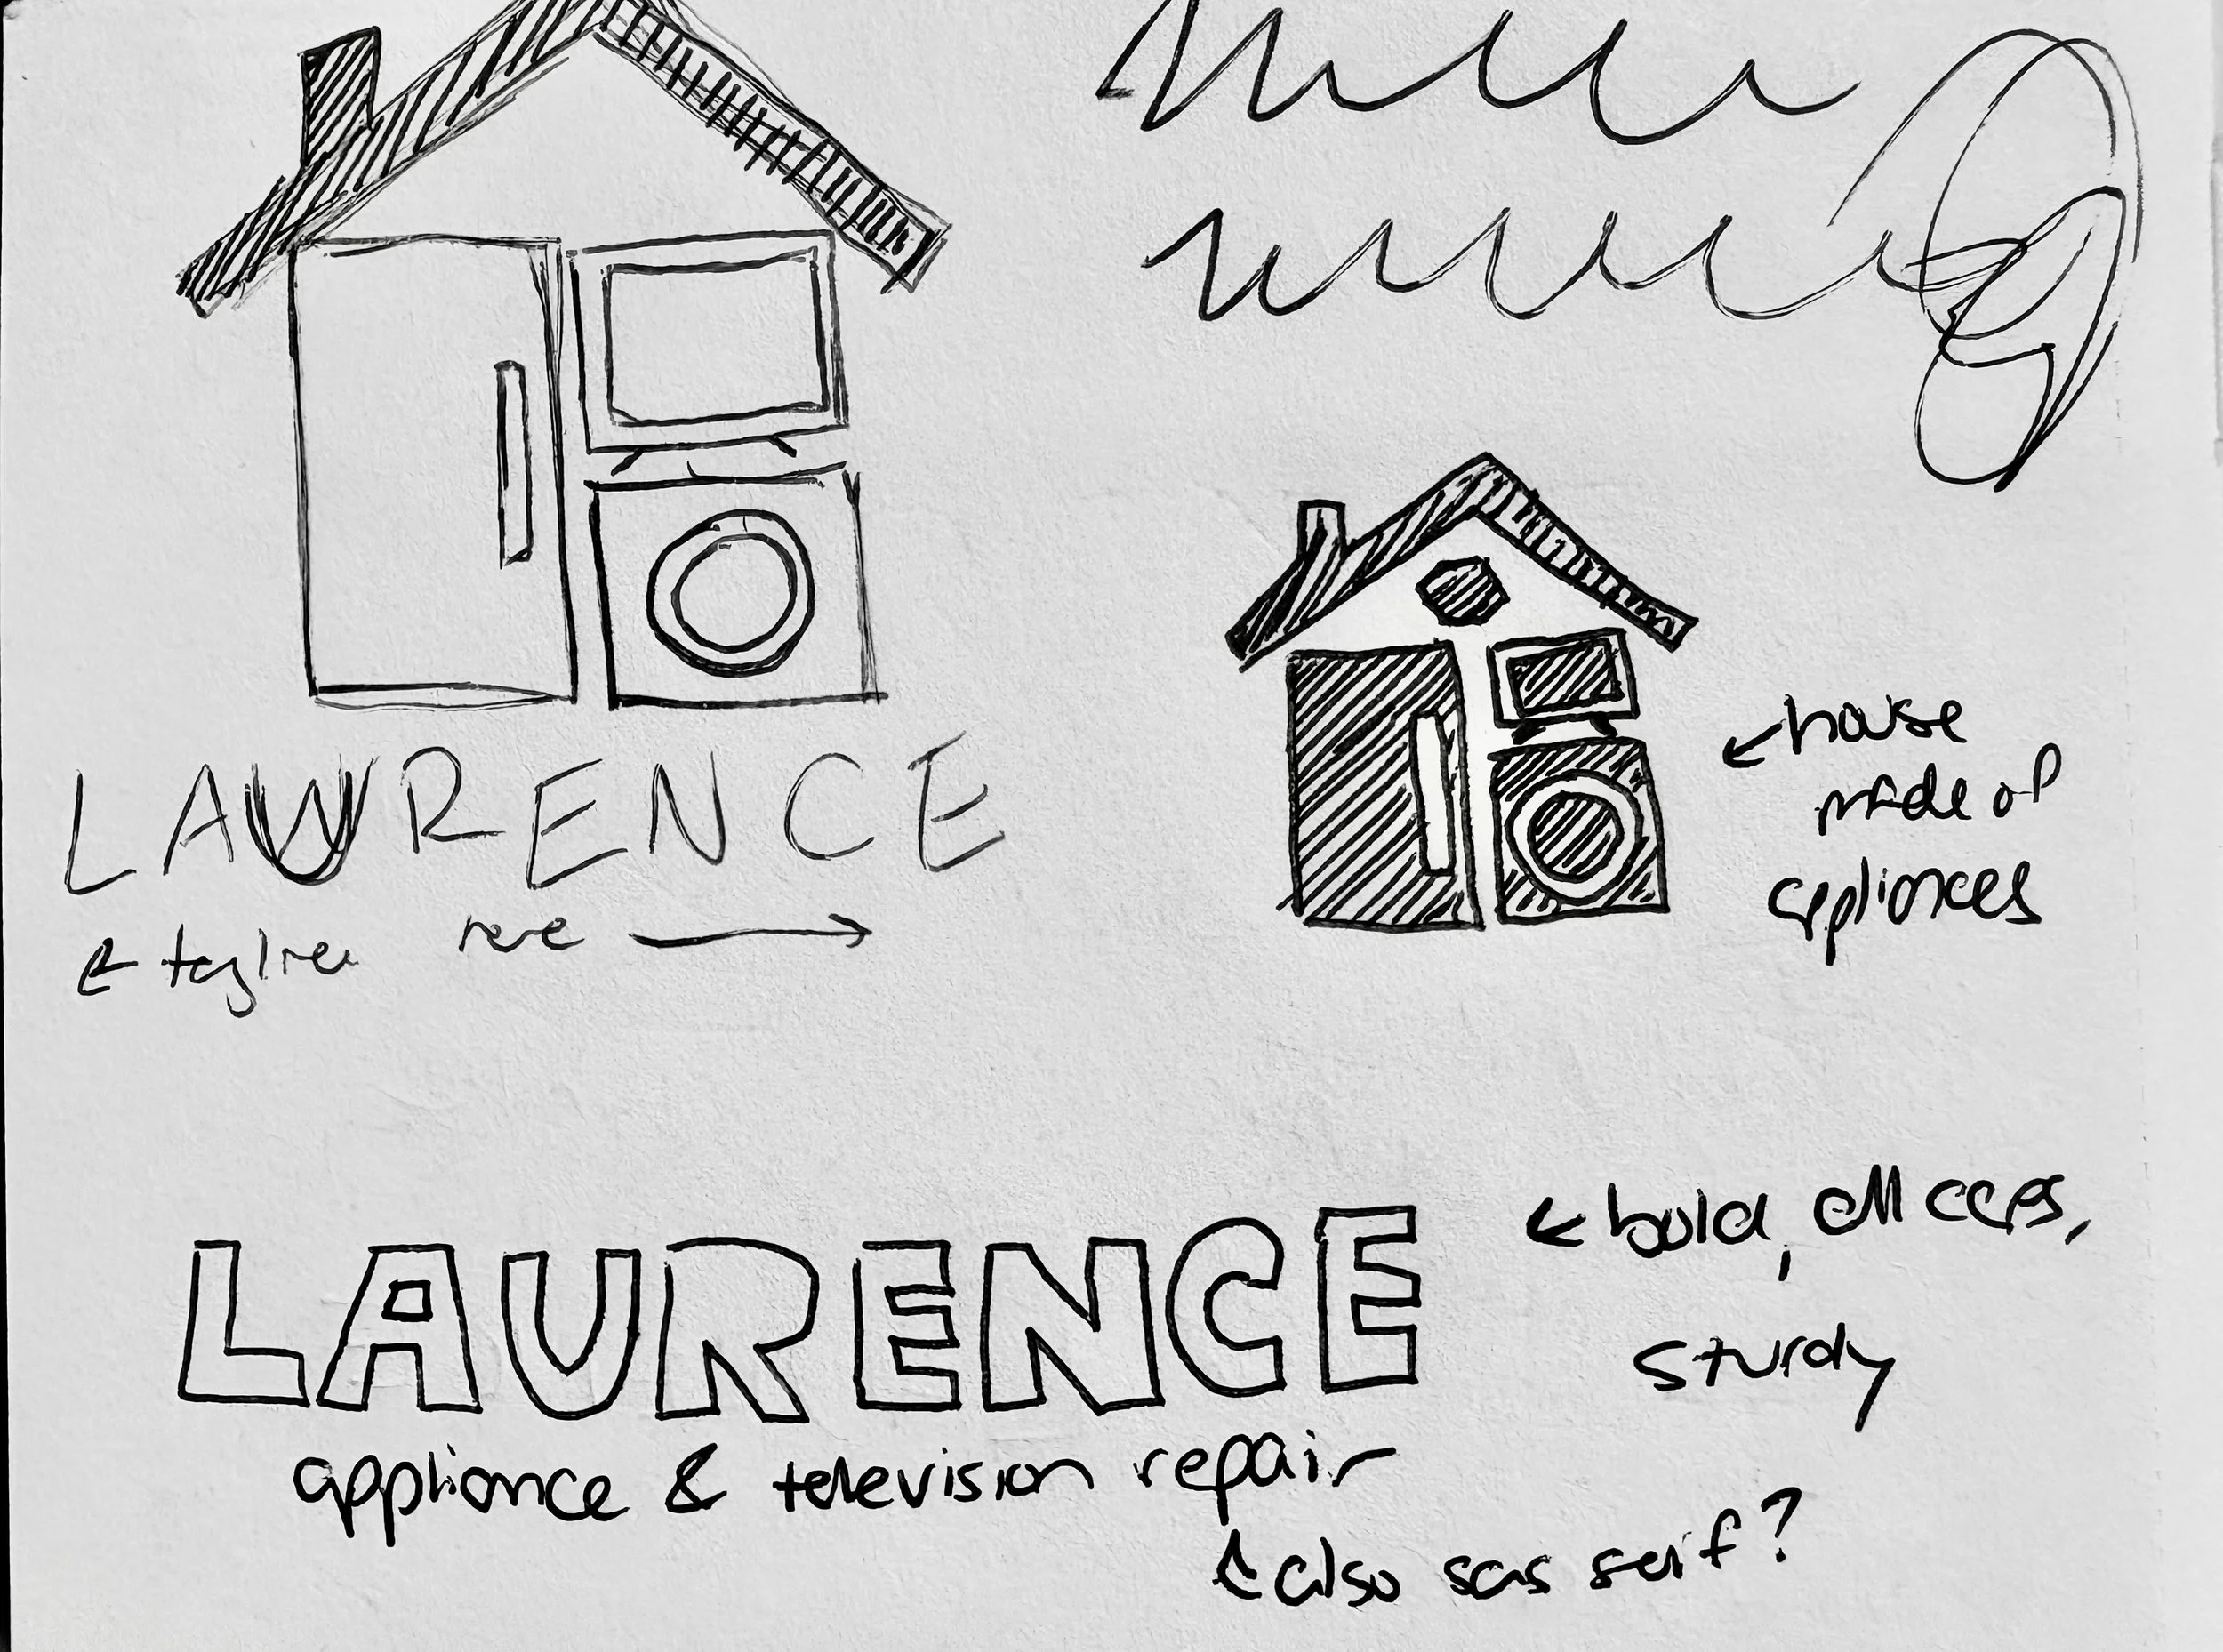 LAURENCE
← tagline here →
← house
made of
appliances
LAURENCE
← bold, all caps,
sturdy
appliance & television repair
↑ also sas serif?